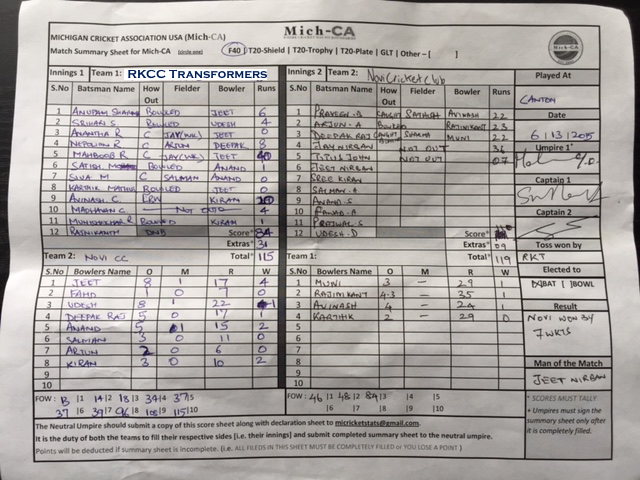 MICHIGAN CRICKET ASSOCIATION USA (Mich-CA)
Mich-CA
Match Summary Sheet for Mich-CA (circle one) F40 | T20-Shield | T20-Trophy | T20-Plate | GLT | Other – [ ]
Innings 1 Team 1: RKCC TRANSFORMERS
S.No Batsman Name How Out Fielder Bowler Runs
1 ANUPAM BOWLED JEET 6
2 BOWLED UDESH 4
3 ANANTHA R C JAY(WK) JEET 0
4 NEPOLIAN R C ARJUN DEEPAK 8
5 MAHBOOB R C JAY(WK) JEET 40
6 SATISH BOWLED ANAND 1
7 SIVA M C SALMAN ANAND 0
8 KARTHIK BOWLED JEET 0
9 AVINASH C LBW KIRAN
10 MADHAVAN C NOT OUT 4
11 BOWLED KIRAN 1
12 RAJNIKANTH DNB Score 84
Extras 31
Total 115
Team 2: NOVI CC
S.No Bowlers Name O M R W
1 JEET 8 1 17 4
2 FAHD 1 0 7 0
3 UDESH 8 1 22 1
4 DEEPAK RAJ 5 0 17 1
5 ANAND 5 1 15 2
6 SALMAN 3 0 11 0
7 ARJUN 2 0 6 0
8 KIRAN 3 0 10 2
9
10
FOW: 13 |1 14|2 18|3 34|4 37|5
37 |6 39|7 |8 |9 115|10
Innings 2 Team 2: Novi Cricket Club
S.No Batsman Name How Out Fielder Bowler Runs
1 PRAVEEN.D CAUGHT SATHISH AVINASH 22
2 ARJUN.A Bowled RAJINIKANT 23
3 DEEPAK RAJ CAUGHT MUNI 22
4 JAY NIRBAN NOT OUT 36
5 TITUS JOHN NOT OUT 07
6 JEET NIRBAN
7 SREE KIRAN
8 SALMAN.A
9 ANAND.S
10 .A
11 .S
12 UDESH.D Score 110
Extras 09
Total 119
Team 1:
S.No Bowlers Name O M R W
1 MUNI 3 – 29 1
2 RAJINIKANT 4.3 – 35 1
3 AVINASH 4 – 24 1
4 KARTHIK 2 – 29 0
5
6
7
8
9
10
FOW: 46 |1 48 |2 84 |3 |4 |5
|6 |7 |8 |9 |10
Played At
CANTON
Date
6/13/2015
Umpire 1*
Captain 1
Captain 2
Toss won by
RKT
Elected to
BAT | BOWL
Result
NOVI WON BY
7 WKTS
Man of the Match
JEET NIRBAN
* SCORES MUST TALLY
* Umpires must sign the summary sheet only after it is completely filled.
The Neutral Umpire should submit a copy of this score sheet along with declaration sheet to micricketstats@gmail.com.
It is the duty of both the teams to fill their respective sides [i.e. their innings] and submit completed summary sheet to the neutral umpire.
Points will be deducted if summary sheet is incomplete. (i.e. ALL FIELDS IN THIS SHEET MUST BE COMPLETELY FILLED OR YOU LOSE A POINT )